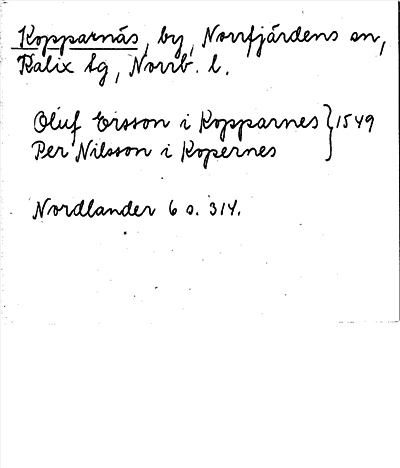 Kopparnäs, by, Norrfjärdens sn,
Kalix tg, Norrb. l.
Oluf Ersson i Kopparnes } 1549
Per Nilsson i Kopernes
Nordlander 6 s. 314.